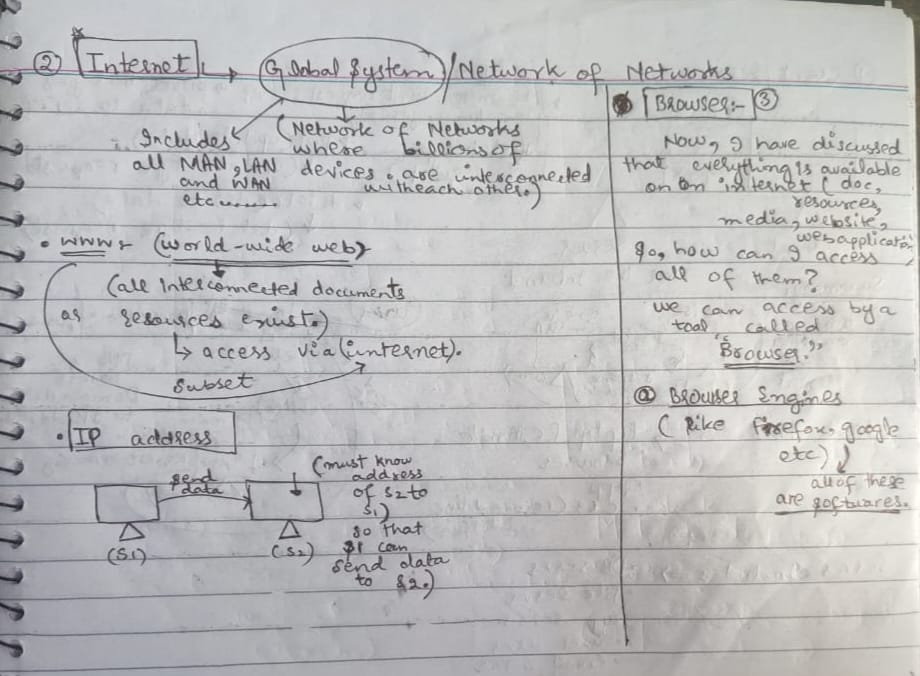 ② Internet → Global System / Network of Networks
Includes
all MAN, LAN
and WAN
etc......
(Network of Networks
where billions of
devices are interconnected
witheach other.)
• WWW (World-wide web)
(all interconnected documents
or resources exist.)
↳ access via (internet).
subset
• IP address
send
data
(S1)
(S2)
(must know
address
of S2 to
S1)
so that
S1 can
send data
to S2.)
Browser:- ③
Now, I have discussed
that everything is available
on internet (doc,
resources,
media, website,
webapplication
So, how can I access
all of them?
we can access by a
tool called
"Browser."
ⓐ Browser Engines
(like firefox, google
etc)
all of these
are softwares.